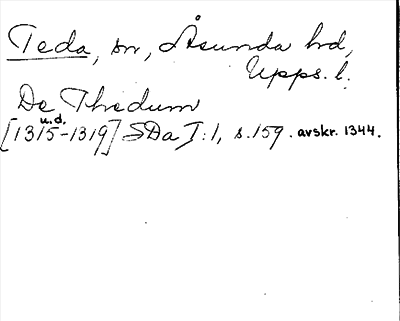 Teda, sn, Åsunda hd,
Upps. l.
De Thedum
u.d.
[1315-1319] SDa I:1, s.159. avskr. 1344.